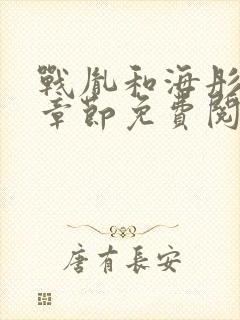 戰胤和海彤
章節免費閱
唐有長安